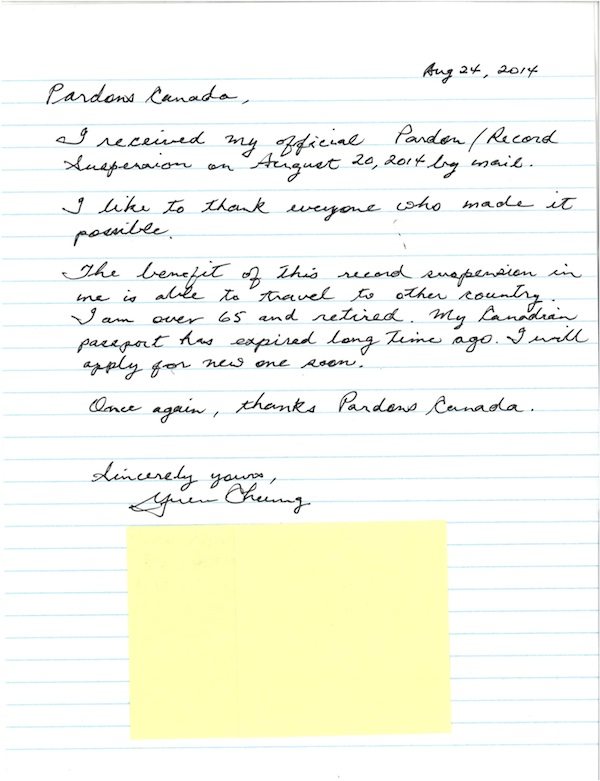 Aug 24, 2014
Pardons Canada,
I received my official Pardon/Record
Suspension on August 20, 2014 by mail.
I like to thank everyone who made it
possible.
The benefit of this record suspension in
me is able to travel to other country.
I am over 65 and retired. My Canadian
passport has expired long time ago. I will
apply for new one soon.
Once again, thanks Pardons Canada.
Sincerely yours,
Yuen Cheung